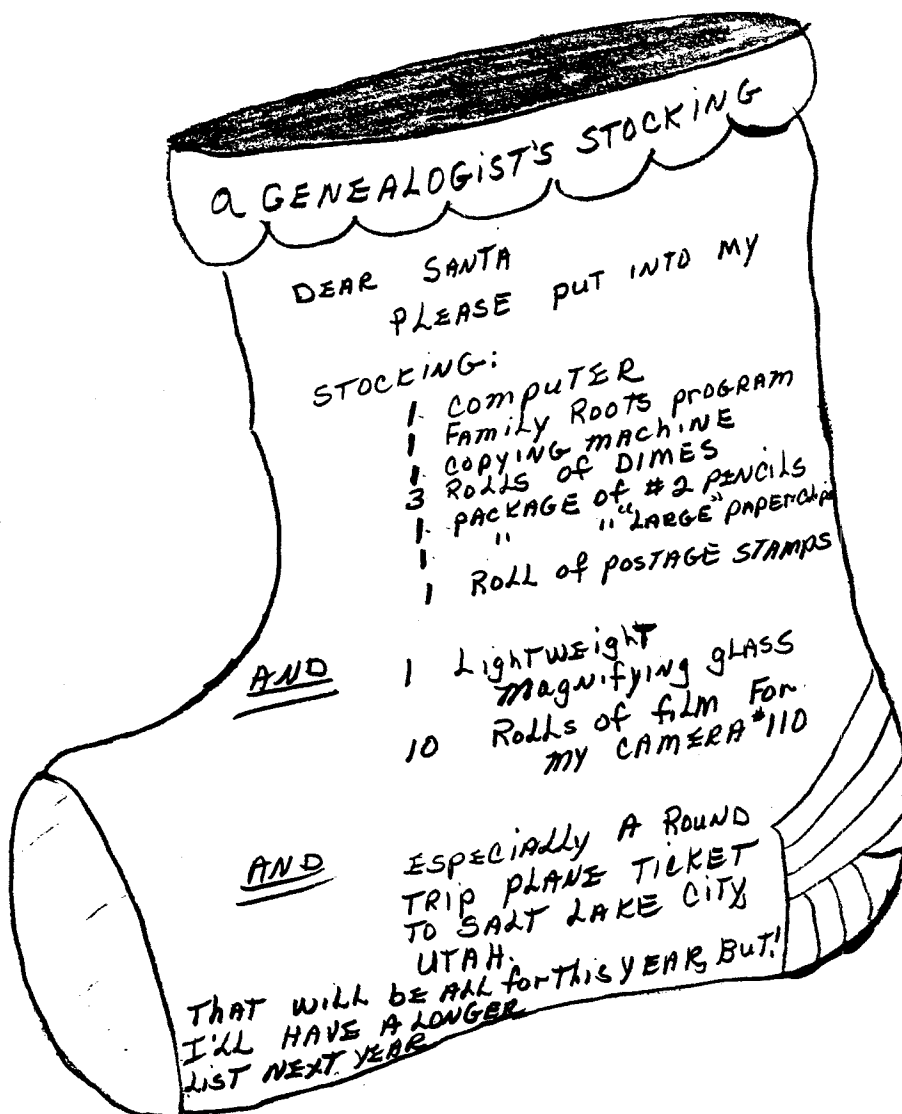 a GENEALOGiST'S STOCKING
DEAR SANTA
PLEASE PUT INTO MY
STOCKING:
1 COMPUTER
1 FAMILY ROOTS PROGRAM
1 COPYING MACHINE
3 ROLLS of DIMES
1 PACKAGE of #2 PENCILS
1 " " "LARGE" PAPERCLips
1 ROLL of POSTAGE STAMPS
AND 1 LighTWEighT
MagNifying gLASS
10 ROLLS of fiLM FOR
MY CAMERA #110
AND ESPECiALLY A ROUND
TRIP PLANE TICKET
TO SALT LAKE CiTY,
UTAH.
THAT WiLL BE ALL for This YEAR, BUT!
I'LL HAVE A LONGER
LiST NEXT YEAR